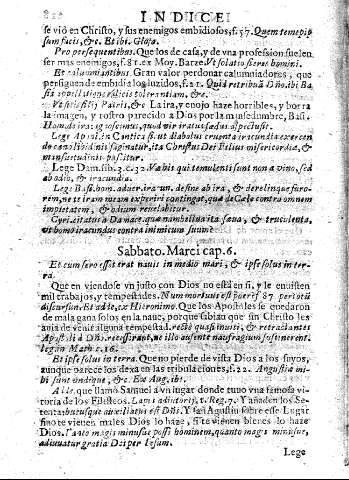 INDICE
se vió en Christo, y sus enemigos embidiosos, f.57. Quem te
sum facis, &c. Et ibi. Glosa.
Pro persequentibus. Que los de casa, y de vna profession suelen
ser mas enemigos, f.81. ex Moy. Barze. Vt solatio sieres homini.
Et calumniantibus. Gran valor perdonar calumniadores, que
persiguen de embidia los luzidos, f.21. Quid retribuã Dño. ibi Ba
tolerantiam, &c.
Patris, &c. La ira, y enojo haze horribles, y borra
la imagen, y rostro parecido a Dios por la mãsedumbre, Basi.
Hom. de ira: ignoscimus, quod vir iratus sedas aspectu sit.
Lege Apõ. in Cantica si. ut diabolus iracundia exercen
ita Christus Dei Filius misericordia, &
mansuetudinis pascitur.
Lege Dam. lib. 3. c. 32. Væ his qui temulenti sunt non a vino, sed
ab odio, & iracundia.
Lege Basi. hom. aduer. ira un. desine ab ira, & derelinque furo-
rem, ne te iram meam experiri contingat, que de Cœlo contra omnem
impietatem, & odium reuelabitur.
truculenta.
vt homo iracundus contra inimicum suum?
Sabbato. Marci cap. 6.
Et cum sero esset erat nauis in medio mari, & ipse solus in ter-
ra.
Que en viendose vn justo con Dios no està en si, y le enuisten
mil trabajos, y tempestades. Num mortuus est f. 87. per totũ
discursum. Et adde, ex Hieronimo. Que los Apostoles se quedaron
de mala gana solos en la naue, porque sabian que sin Christo les
auia de venir alguna tempestad. rectè quasi inuiti, & retractantes
Apostoli à Dño. recesserant, ne illo absente naufragium sustinerent.
legẽ in Math. c. 16.
Et ipse solus in terra. Que no pierde de vista Dios a los suyos,
aunque parece los dexa en las tribulaciones, f.22. Angustiæ mi-
hi sunt vndique, &c. Ex Aug. ibi.
Adde, que llamò Samuel a vn lugar donde tuuo vna famosa vi-
toria de los Filisteos. Lapis adiutorij, 1. Reg. 7. Y añaden los Se-
tenta: hucusque auxiliatus est Dñs. Y san Agustin sobre este Lugar
si no te vienen males Dios lo haze, si te vienen bienes lo haze
Dios. Tanto magis minus se posse hominem, quanto magis minuitur,
adiuuatur gratia Dei per Iesum.
Lege